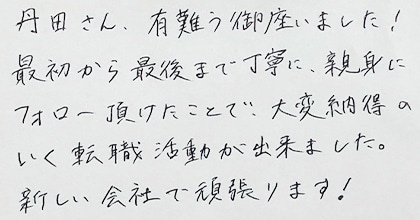 丹田さん、有難う御座いました!
最初から最後まで丁寧に、親身に
フォロー頂けたことで、大変納得の
いく転職活動が出来ました。
新しい会社で頑張ります!